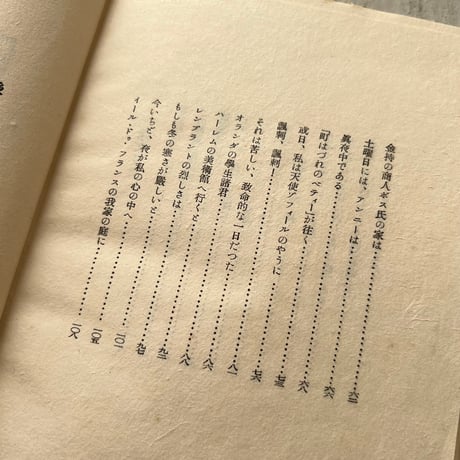 金持の商人ボス氏の家は……………六二
土曜日には、アンニーは……………六五
眞夜中である……………六六
「町はづれのベティー」が往く……………六八
或日、私は天使ゾフィールのやうに……………七三
諷刺、諷刺!……………七六
それは苦しい、致命的な一日だつた……………八一
オランダの學生諸君……………八六
ハーレムの美術館へ行くと……………八八
レンブラントの烈しさは……………九二
もしも冬の寒さが嚴しいと……………九七
今いちど、夜が私の心の中へ……………一〇一
イール・ドゥ・フランスの我家の庭に……………一〇五
一〇八